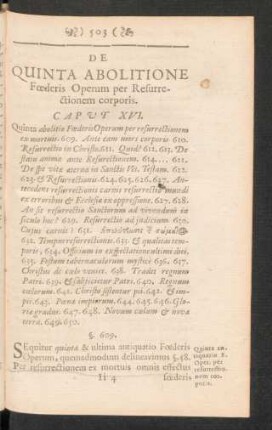 503
DE
QUINTA ABOLITIONE
Fœderis Operum per Resurre-
ctionem corporis.
CAPUT XVI.
Quinta abolitio Fœderis Operum per resurrectionem
ex mortuis. 609. Ante eam mori corpora 610.
Resurrectio in Christo. 611. Quid? 612. 613. De
statu animæ ante Resurrectionem. 614. ... 621.
De spe vitæ æternæ in Sanctis Vet. Testam. 622.
623. & Resurrectionis. 624. 625. 626. 627. An-
tecedens resurrectionem carnis resurrectio mundi
ex erroribus & Ecclesiæ ex oppressione. 627. 628.
An sit resurrectio Sanctorum ad vivendum in
seculo hoc? 629. Resurrectio ad judicium. 630.
Cujus carnis?
632. Tempus resurrectionis. 633. & qualitas tem-
poris, 634. Officium in exspectatione ultimi diei,
635. Festum tabernaculorum mysticè 636. 637.
Christus de cælo veniet. 638. Tradet regnum
Patri. 639. & subjicietur Patri. 640. Regnum
cælorum. 641. Christo sistentur pii. 642. & im-
pii. 643. Pœna impiorum, 644. 645. 646. Glo-
riæ gradus. 647. 648. Novum cælum & nova
terra. 649. 650.
§. 609.
SEquitur quinta & ultima antiquatio Fœderis
Operum, quemadmodum delineavimus §. 58.
Per resurrectionem ex mortuis omnis effectus
Ii 4 fœderis
Quinta an-
tiquatio F.
Oper. per
resurrectio-
nem cor-
poris.